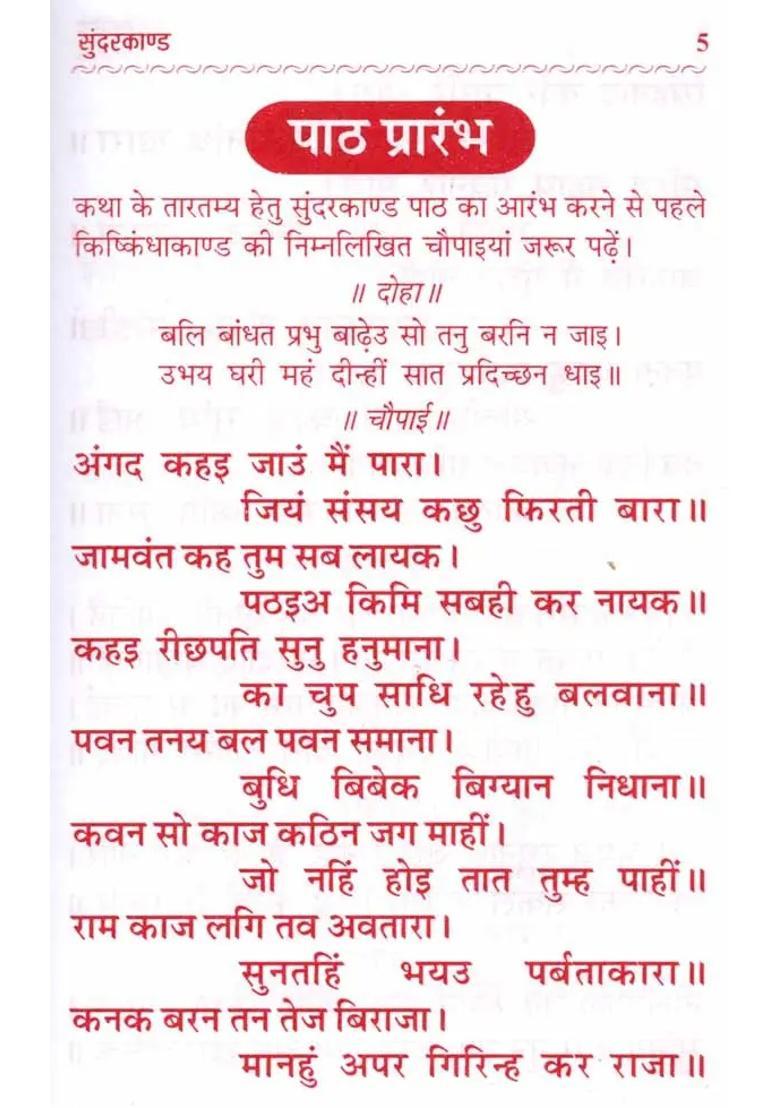 सुंदरकाण्ड 5
पाठ प्रारंभ
कथा के तारतम्य हेतु सुंदरकाण्ड पाठ का आरंभ करने से पहले
किष्किंधाकाण्ड की निम्नलिखित चौपाइयां जरूर पढ़ें।
॥ दोहा॥
बलि बांधत प्रभु बाढ़ेउ सो तनु बरनि न जाइ।
उभय घरी महं दीन्हीं सात प्रदिच्छन धाइ॥
॥ चौपाई॥
अंगद कहइ जाउं मैं पारा।
जियं संसय कछु फिरती बारा॥
जामवंत कह तुम सब लायक।
पठइअ किमि सबही कर नायक॥
कहइ रीछपति सुनु हनुमाना।
का चुप साधि रहेहु बलवाना॥
पवन तनय बल पवन समाना।
बुधि बिबेक बिग्यान निधाना॥
कवन सो काज कठिन जग माहीं।
जो नहिं होइ तात तुम्ह पाहीं॥
राम काज लगि तव अवतारा।
सुनतहिं भयउ पर्बताकारा॥
कनक बरन तन तेज बिराजा।
मानहुं अपर गिरिन्ह कर राजा॥